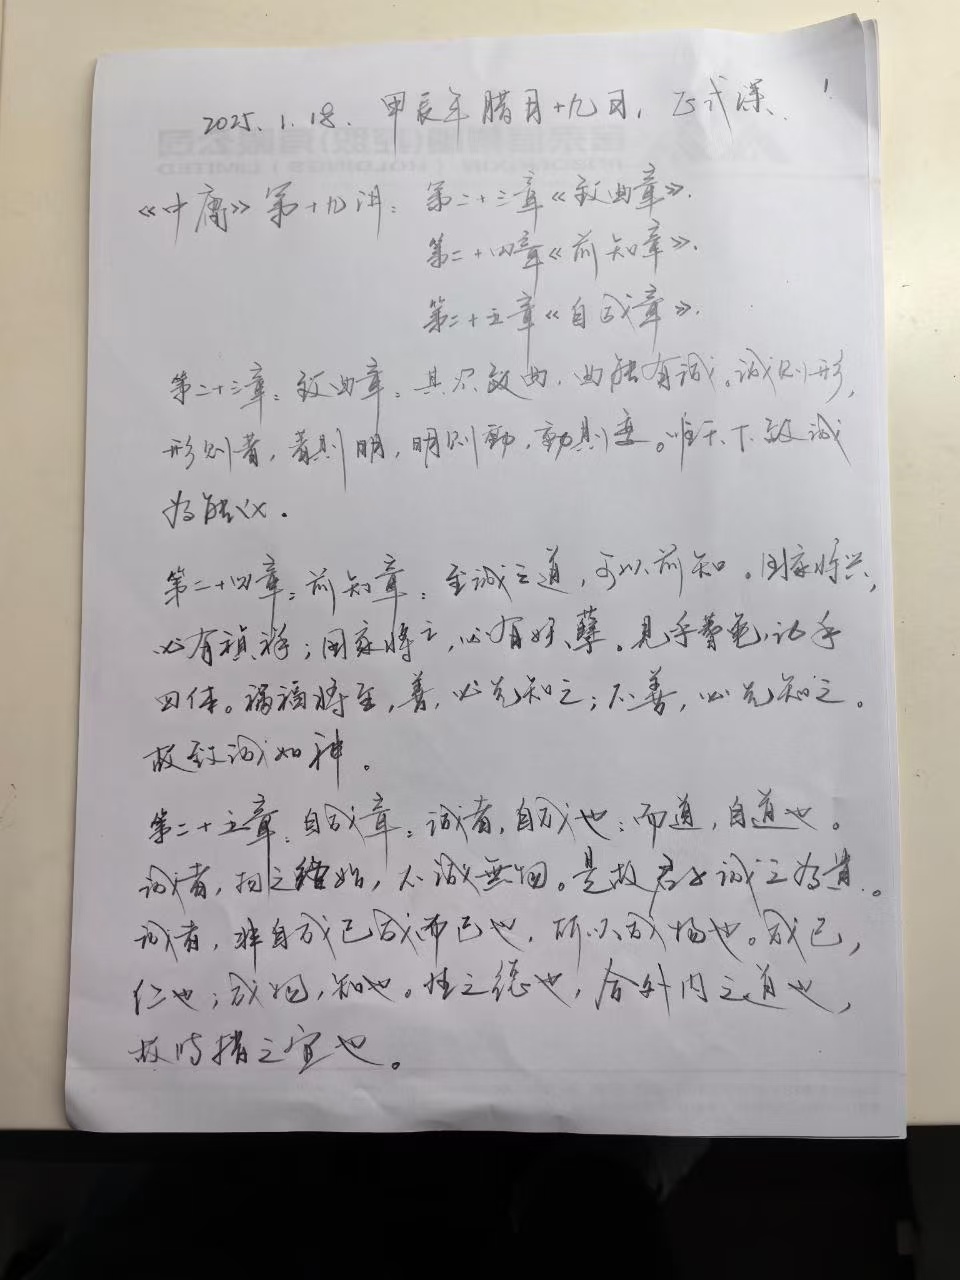 2025.1.18. 甲辰年腊月十九日,
1
《中庸》第十九讲: 第二十三章《致曲章》.
第二十四章《前知章》.
第二十五章《自成章》.
第二十三章: 致曲章: 其次致曲, 曲能有诚。诚则形,
形则著, 著则明, 明则動, 動则变。唯天下致诚
为能化.
第二十四章: 前知章: 至诚之道, 可以前知。国家将兴,
必有祯祥; 国家将亡, 必有妖孽。見乎蓍龟, 动乎
四体。祸福将至, 善, 必先知之; 不善, 必先知之。
故致诚如神。
第二十五章: 自成章: 诚者, 自成也; 而道, 自道也。
诚者, 物之终始, 不诚無物。是故君子诚之为贵。
诚者, 非自成己成而已也, 所以成物也。成已,
仁也; 成物, 知也。性之德也, 合外内之道也,
故时措之宜也。